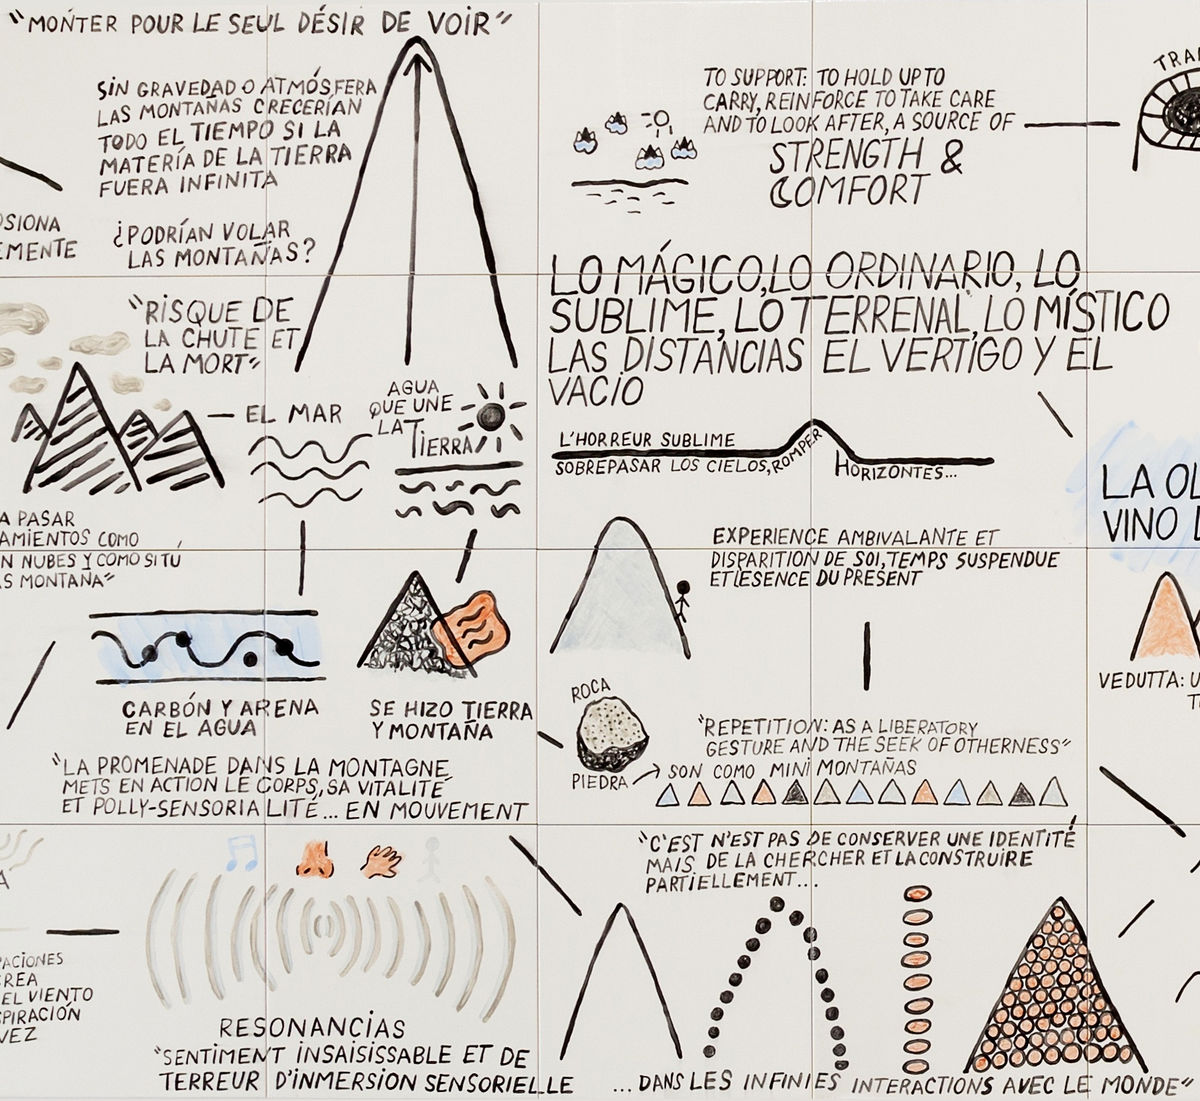 "MONTER POUR LE SEUL DÉSIR DE VOIR"
SIN GRAVEDAD O ATMÓSFERA
LAS MONTAÑAS CRECERÍAN
TODO EL TIEMPO SI LA
MATERÍA DE LA TIERRA
FUERA INFINITA
¿PODRÍAN VOLAR
LAS MONTAÑAS?
TO SUPPORT: TO HOLD UP TO
CARRY, REINFORCE TO TAKE CARE
AND TO LOOK AFTER, A SOURCE OF
STRENGTH &
COMFORT
TRA
OSIONA
EMENTE
"RISQUE DE
LA CHUTE ET
LA MORT"
EL MAR
AGUA
QUE UNE
LA TIERRA
LO MÁGICO, LO ORDINARIO, LO
SUBLIME, LO TERRENAL, LO MÍSTICO
LAS DISTANCIAS EL VERTIGO Y EL
VACIO
L'HORREUR SUBLIME
SOBREPASAR LOS CIELOS, ROMPER HORIZONTES...
LA OL
VINO L
A PASAR
AMIENTOS COMO
N NUBES Y COMO SI TÚ
S MONTAÑA"
EXPERIENCE AMBIVALANTE ET
DISPARITION DE SOI, TEMPS SUSPENDUE
ET LESENCE DU PRESENT
CARBÓN Y ARENA
EN EL AGUA
SE HIZO TIERRA
Y MONTAÑA
ROCA
PIEDRA
VEDUTTA: U
"REPETITION: AS A LIBERATORY
GESTURE AND THE SEEK OF OTHERNESS"
SON COMO MINI MONTAÑAS
"LA PROMENADE DANS LA MONTAGNE
METS EN ACTION LE CORPS, SA VITALITÉ
ET POLLY-SENSORIALITÉ... EN MOUVEMENT
"C'EST N'EST PAS DE CONSERVER UNE IDENTITÉ
MAIS DE LA CHERCHER ET LA CONSTRUIRE
PARTIELLEMENT...
PACIONES
CREA
EL VIENTO
SPIRACIÓN
VEZ
RESONANCIAS
"SENTIMENT INSAISISSABLE ET DE
TERREUR D'INMERSION SENSORIELLE
...DANS LES INFINIES INTERACTIONS AVEC LE MONDE"